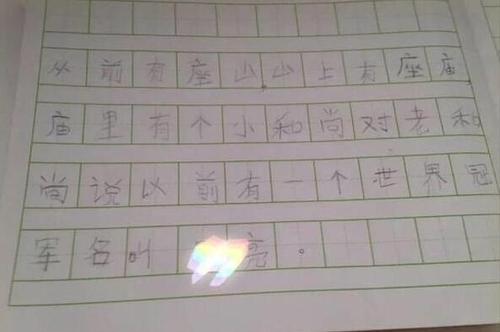 从前有座山,山上有座庙,
庙里有个小和尚对老和
尚说以前有一个世界冠
军名叫亮。